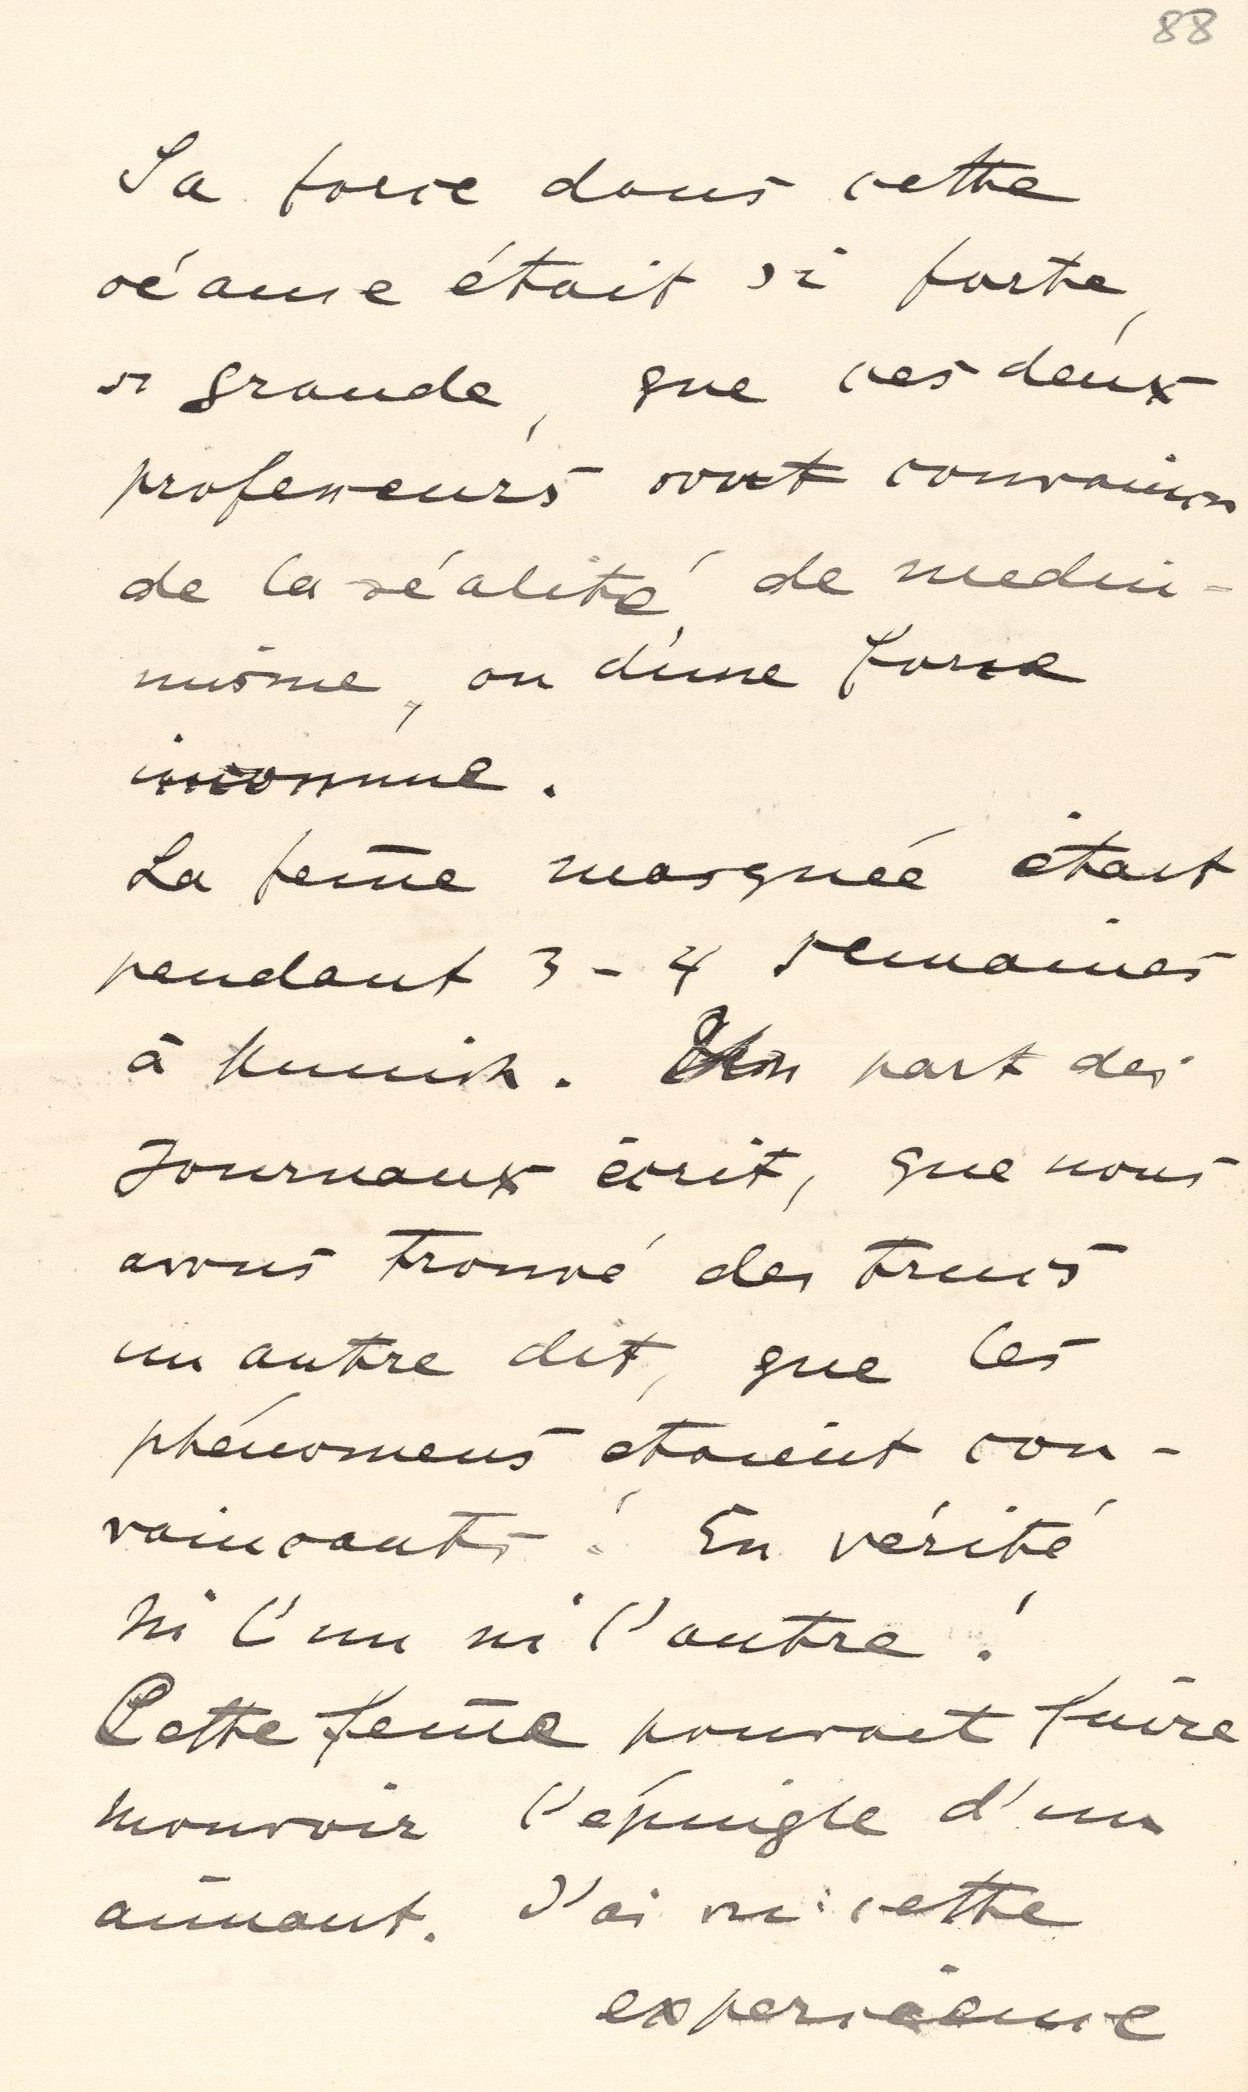 88
Sa force dans cette
séance était si forte,
si grande, que ces deux
professeurs sont convaincus
de la réalité de mediu-
nisme, ou d'une force
inconnue.
La fem̄e masquée était
pendant 3-4 semaines
à Munich. Un part des
Journaux écrit, que nous
avons trouvé des trucs
un autre dit, que les
phénomens étaient con-
vaincants! En vérité
ni l'un ni l'autre!
Cette fem̄e pouvait faire
mouvoir l'épingle d'un
aimant. J'ai vu cette
experience